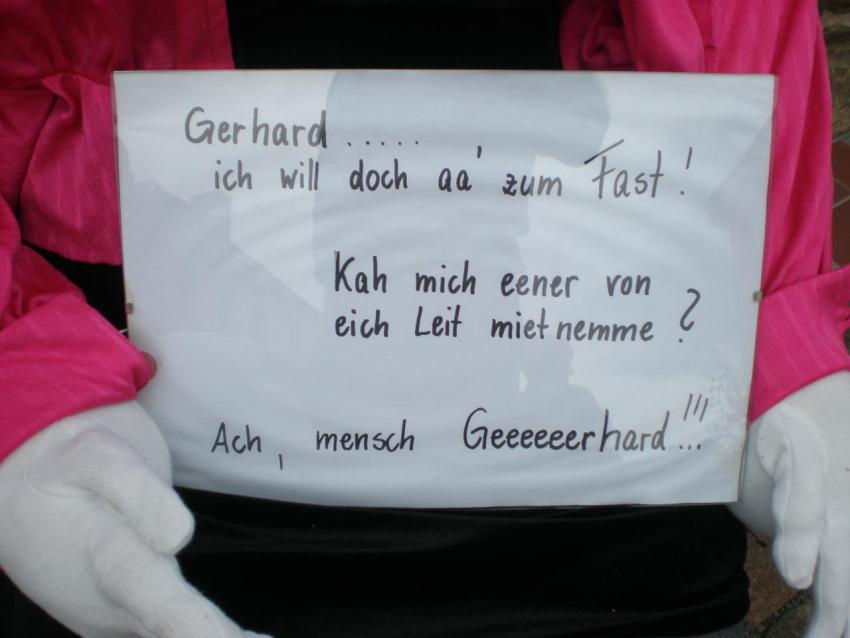 Gerhard .....
ich will doch aa' zum Fast!
Kah mich eener von
eich Leit mietnemme?
Ach, mensch Geeeeeerhard!!!